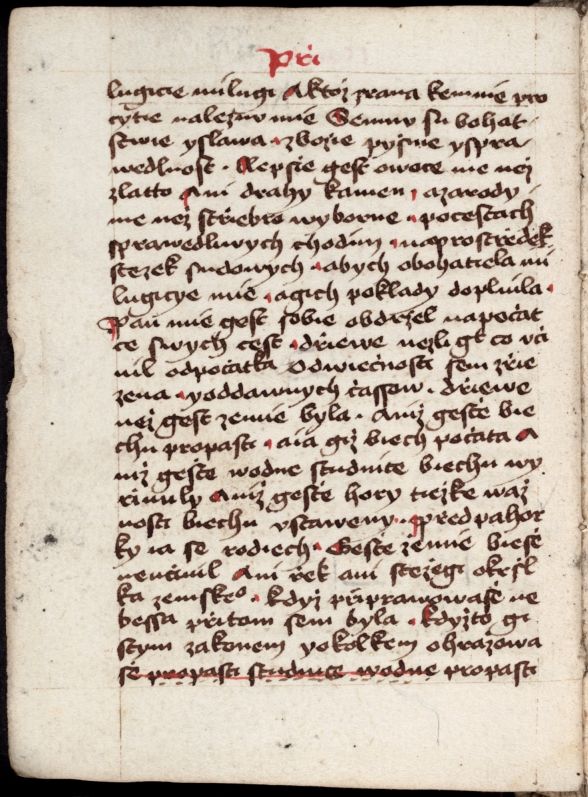 Při
lugicie milugi A ktoz zrana kemnie pro
cytie nalezuu mie Semnu su bohat
stwie yslawa zbozie pyssne yspra
wedlnost · Lepsie gest owoce me nez
zlatto Ani drahy kamen · azarody
me nez střiebro wyborne · pocestach
sprawedliwych chodim · naprostřědek
stezek sudowych · abych obohatiela mi
lugicye mie · agich poklady doplnila ·
Pan mie gest sobie obdrzel napočat
ce swych cest · dřiewe nezli gt co vči
nil odpočatka Odwiečnosti sem zřie
zena · yoddawnych čassow · dřiewe
nez gest zemie byla · Aniz gestie bie
chu propasti · aia giz biech počata A
niz gestie wodne studnice biechu wy
rinuly Aniz gestie hory tiezke waz
nosti biechu vstaweny · předpahor
ky ia se rodiech · Gestie zemie biesse
neučinil Ani řek ani stezegi okrsl
ka zemskeo · kdyz připrawowasse ne
bessa přitom sem byla · kdyzto gi
stym zakonem yokolkem ohrazowa
sse propasti studnice wodne propasti